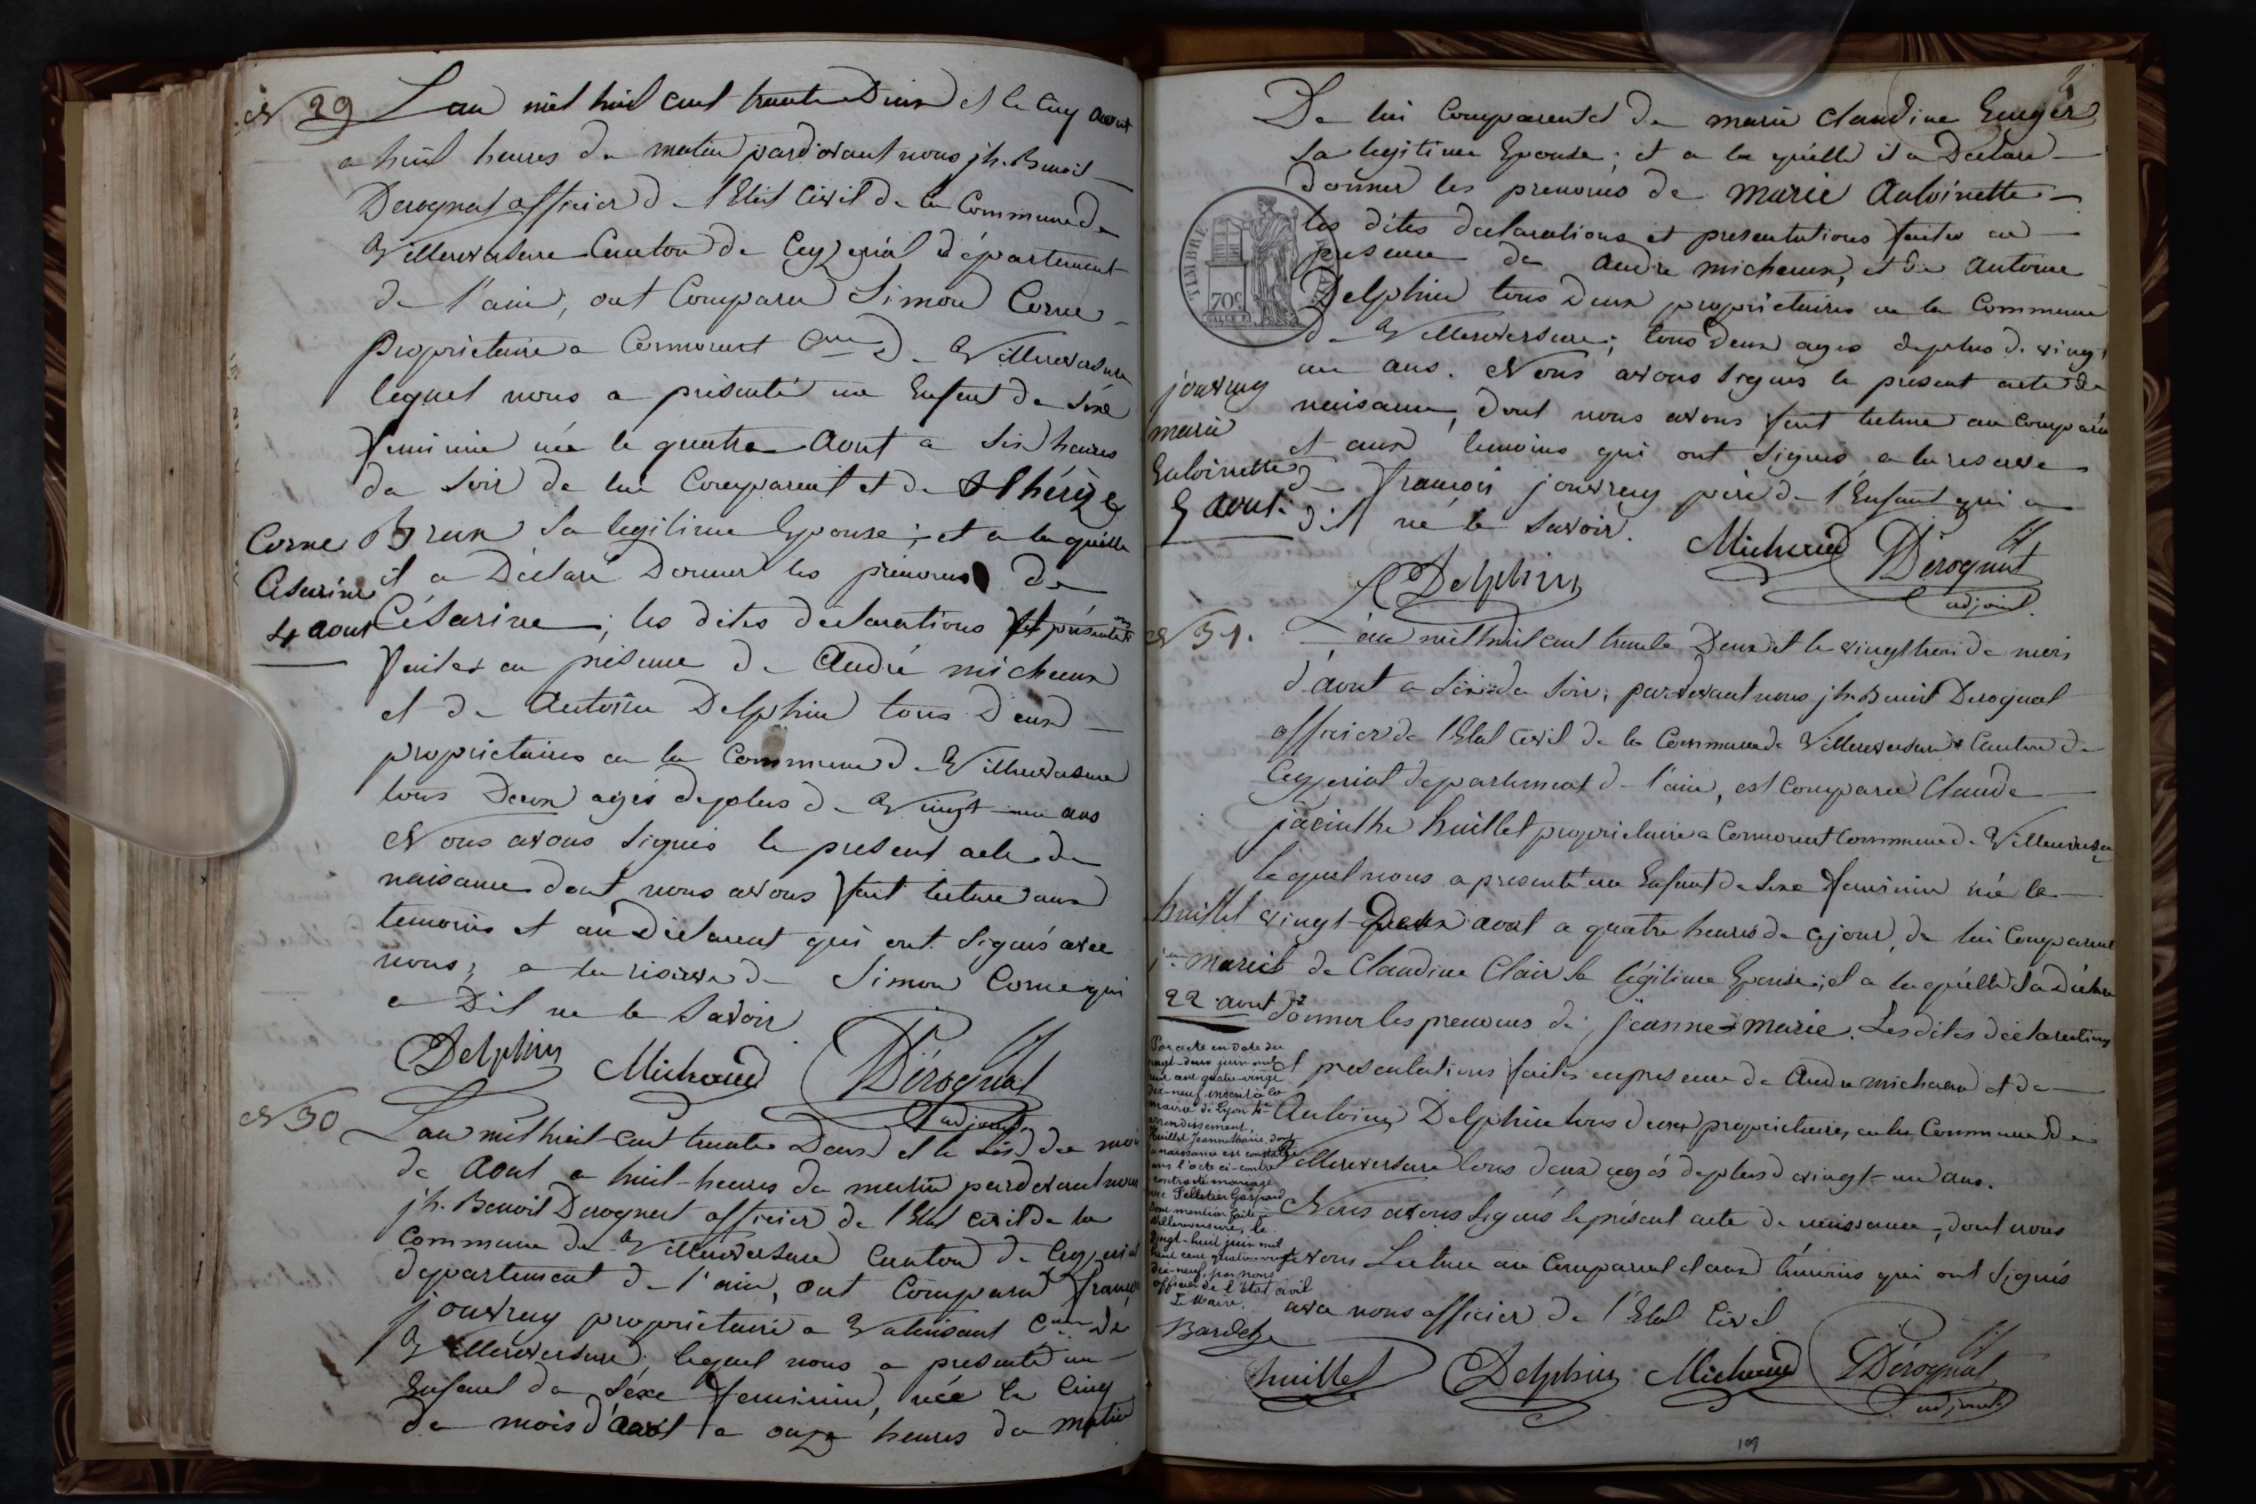 N 29 L'an mil huit cent trente Deux et le cinq aout
a huit heures du matin pardevant nous jh. Benoit
Derognat officier de l'Etat Civil de la Commune de
Villereversure Canton de Ceyzeriat département
de l'ain, ont Comparu Simon Corne
propriétaire a Cormorant Cne de Villereversure
lequel nous a présenté un Enfant de séxe
feminin née le quatre Aout a six heures
du soir de lui Comparant et de Thérèze
Brun sa legitime Epouse ; et a laquelle
il a Déclaré Donner les prénoms de
Césarine ; les dites declarations et présentations
faites en présence de André micheaux
et de Antoine Delphin tous deux
propriétaires en la Commune de Villereversure
tous Deux agés de plus de Vingt un ans
Nous avons signés le présent acte de
naisance dont nous avons fait lecture aux
temoins et au Déclarant qui ont signés avec
nous, a la réserve de Simon Corne qui
a Dit ne le Savoir
Corne
Césarine
4 aout
Delphin Michaud Dérognat
adjoint
N 30 L'an mil huit cent trente Deux et le six du mois
de Aout a huit heures du matin pardevant nous
jh. Benoit Derognat officier de l'Etat civil de la
Commune de Villereversure Canton de Ceyzeriat
département de l'ain, ont Comparu françois
jouvray propriétaire a Cne de
Villereversure, lequel nous a présenté un
Enfant de séxe feminin, née le cinq
du mois d'aout a onze heures du matin
De lui Comparant et de marie Claudine
sa legitime Epouse ; et a la quelle il a Déclaré
donner les prenoms de marie Antoinette
les dites declarations et presentations faites en
presence de André micheaux, et de Antoine
Delphin tous deux propriétaires en la Commune
de Villereversure, tous deux agés de plus de vingt
un ans. Nous avons signés le présent acte de
naisance, dont nous avons fait lecture au comparu
et aux temoins qui ont signés a la reserve
de françois jouvray père de l'Enfant qui a
dit ne le Savoir.
jouvray
marie
Entoinette
5 aout.
TIMBRE ROYAL
70c
Michaud Dérognat
Delphin adjoint
N 31. L'an mil huit cent trente Deux et le vingt trois du mois
d'aout a six du soir, pardevant nous jh. Benoit Derognat
officier de l'Etat Civil de la Commune de Villereversure Canton de
Ceyzeriat département de l'ain, est comparu Claude
jacinthe huillet propriétaire a Cormorant Commune de Villereversure
lequel nous a presenté un Enfant de sexe feminin née le
vingt-deux aout a quatre heures de ce jour, de lui Comparant
et de Claudine Clair sa légitime Epouse ; et a la quélle il a Déclaré
donner les prenoms de Jeanne-marie. Les dites déclarations
et presentations faites en presence de Andre micheaux et de
Antoine Delphin tous deux propriétaires, en la Commune de
Villereversure tous deux agés de plus de vingt-un ans.
Nous avons signés le présent acte de naissance, dont nous
avons Lecture au Comparant et aux témoins qui ont signés
avec nous officier de l'Etat Civil
huillet
jne marie
22 aout
Par acte en date du
vingt-deux juin mil
huit cent quatre-vingt
dix-neuf inscrit à la
mairie de Lyon 4e
arrondissement,
Huillet Jeanne Marie, dont
la naissance est constatée
dans l'acte ci-contre
a contracté mariage
avec Pelletier Gaspard
Dont mention faite à
Villereversure, le
vingt-huit juin mil
huit cent quatre-vingt
dix-neuf, par nous
officier de l'état civil
Le Maire.
huillet Delphin Michaud Dérognat
adjoint
109